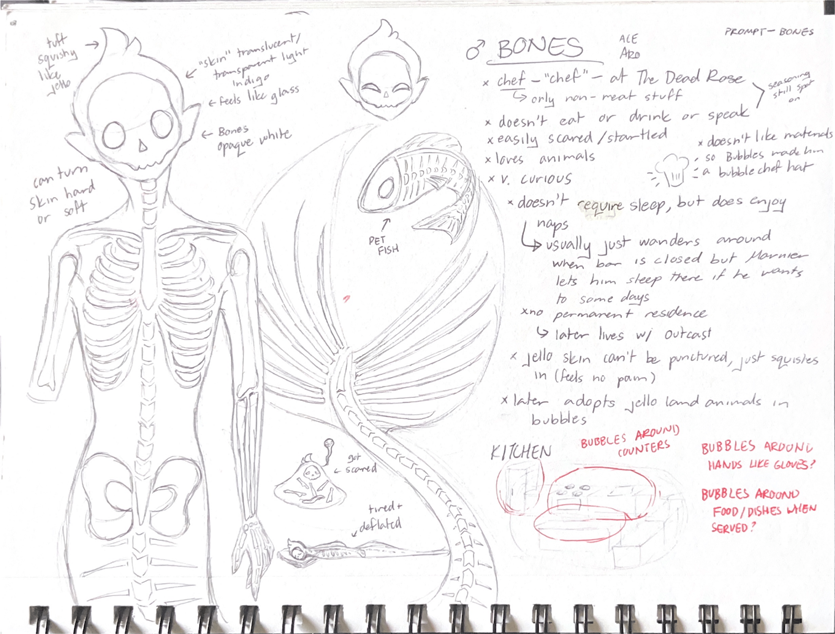 tuft
squishy
like
jello
"skin" translucent/
transparent light
indigo
feels like glass
Bones
opaque white
can turn
skin hard
or soft
PET
FISH
got
scared
tired +
deflated
PROMPT - BONES
♂ BONES
ACE
ARO
x chef - "chef" - at The Dead Rose
↳ only non-meat stuff
x doesn't eat or drink or speak
seasoning
still spot
on
x easily scared/startled
x loves animals
x v. curious
x doesn't like materials
so Bubbles made him
a bubble chef hat
x doesn't require sleep, but does enjoy
naps
↳ usually just wanders around
when bar is closed but Marnier
lets him sleep there if he wants
to some days
x no permanent residence
↳ later lives w/ Outcast
x jello skin can't be punctured, just squishes
in (feels no pain)
x later adopts jello land animals in
bubbles
KITCHEN
BUBBLES AROUND
COUNTERS
BUBBLES AROUND
HANDS LIKE GLOVES?
BUBBLES AROUND
FOOD/DISHES WHEN
SERVED?